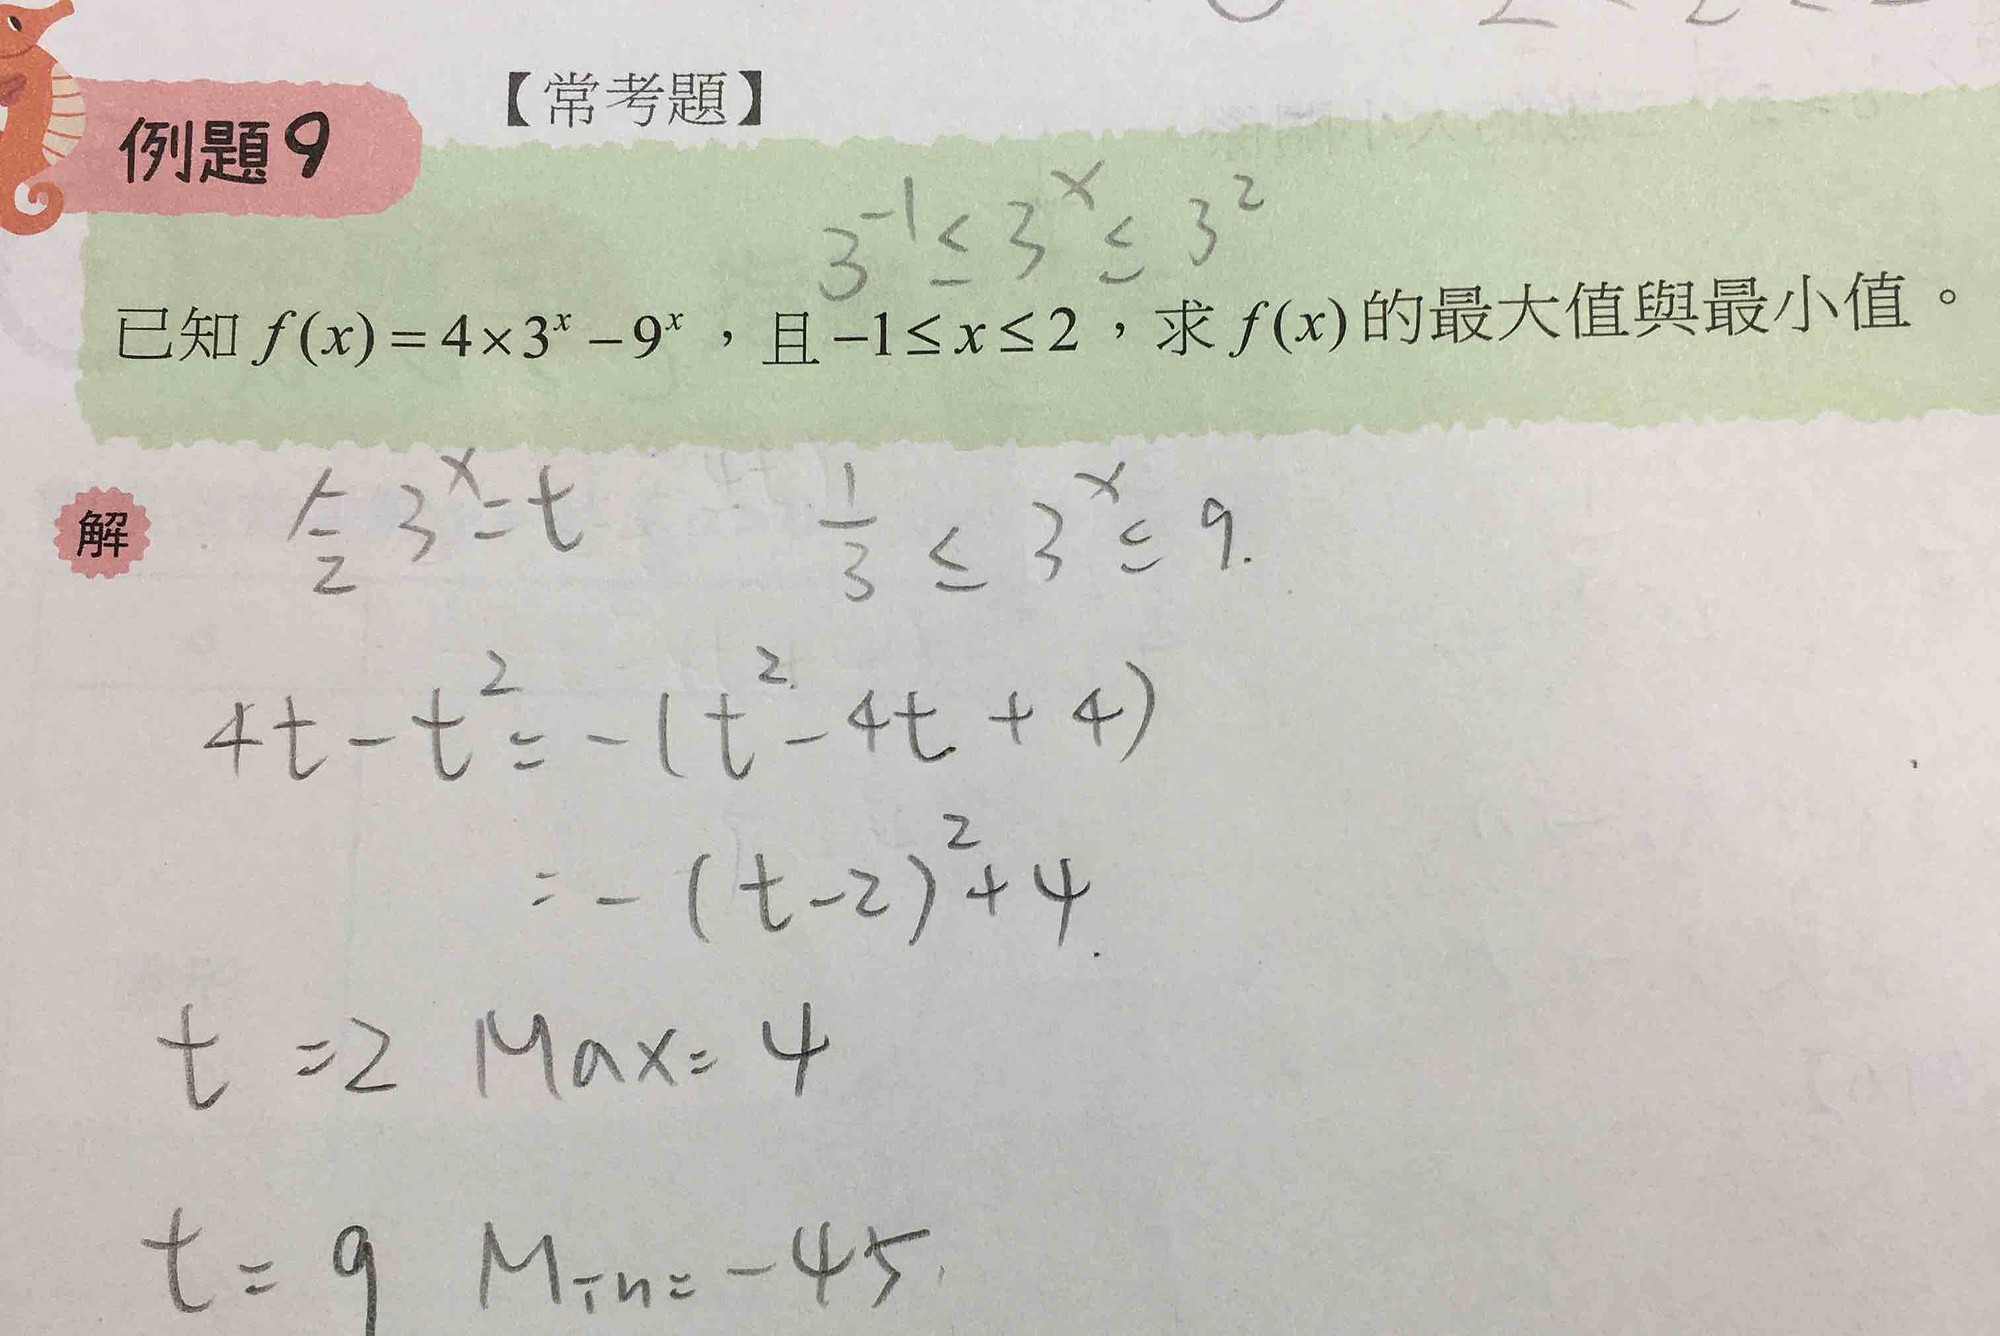 【常考題】
例題9
3^{-1} ≤ 3^x ≤ 3^2
已知 f(x)=4×3^x−9^x，且 −1≤x≤2，求 f(x) 的最大值與最小值。
解 令 3^x=t 1/3 ≤ 3^x ≤ 9.
4t − t^2 = −(t^2 − 4t + 4)
= −(t−2)^2+4.
t=2 Max=4
t=9 Min=−45